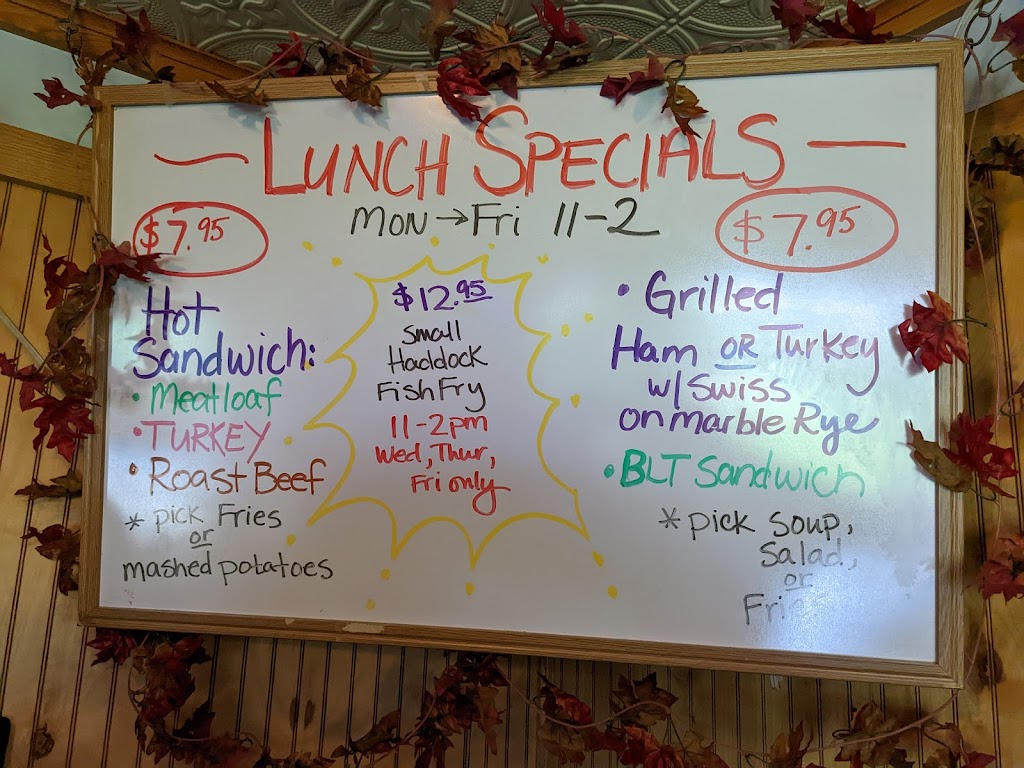 LUNCH SPECIALS
MON → Fri 11-2
$7.95
Hot
Sandwich:
• Meatloaf
• TURKEY
• Roast Beef
* pick Fries
or
mashed potatoes
$12.95
Small
Haddock
Fish Fry
11-2pm
Wed, Thur,
Fri only
$7.95
• Grilled
Ham OR Turkey
w/ Swiss
on marble Rye
• BLT Sandwich
* pick soup,
salad,
or